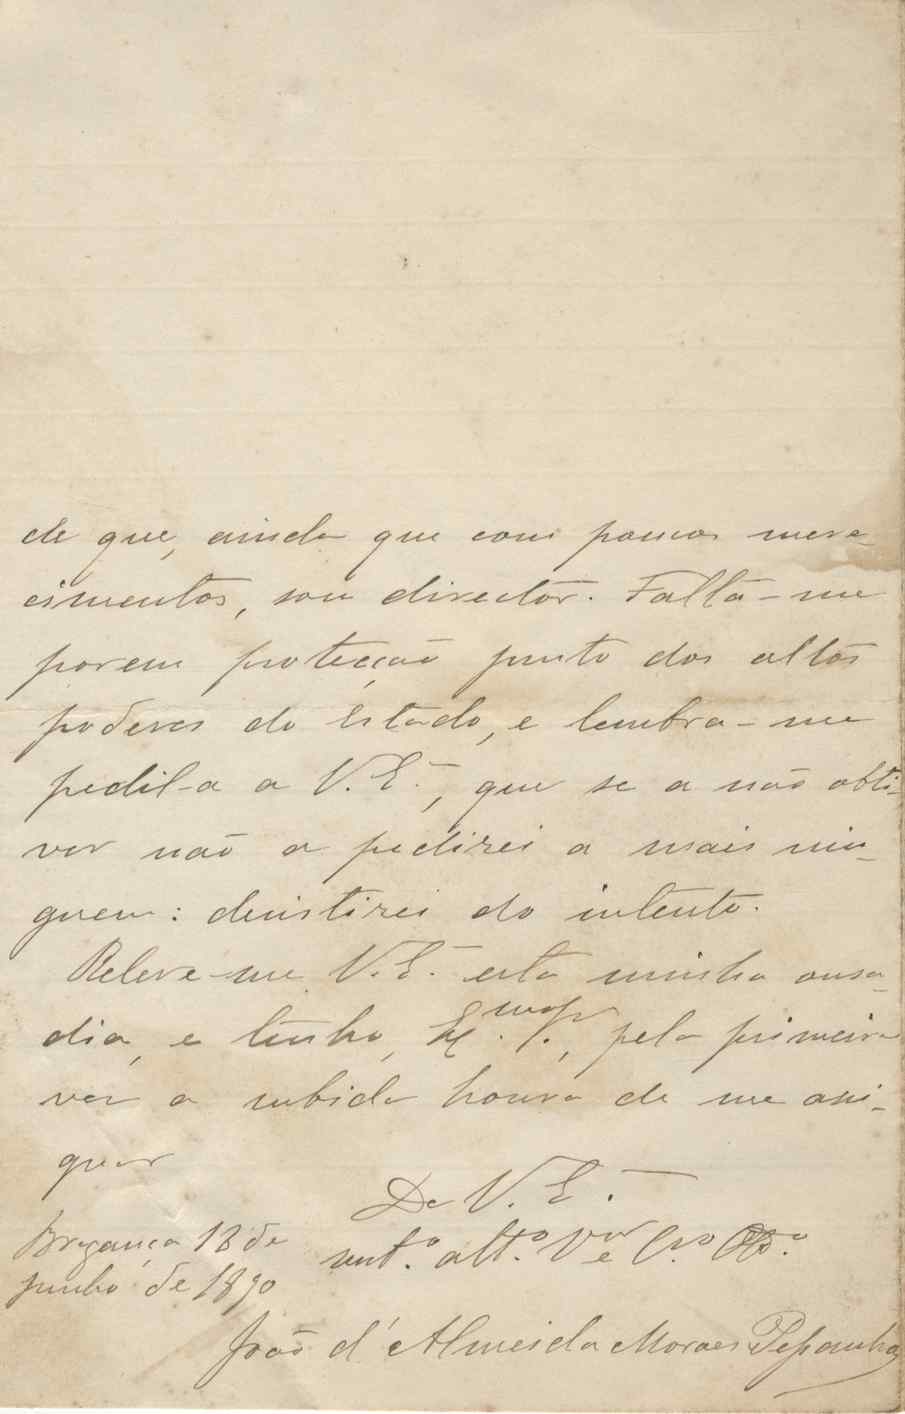 de que, ainda que com poucos mere-
cimentos, sou director. Falta-me
porem protecção junto dos altos
poderes do Estado, e lembra-me
pedil-a a V. E.ª, que se a não obti-
ver não a pedirei a mais nin-
guem: desistirei do intento.
Releve-me V. E.ª esta minha ousa-
dia, e tenho, Ex.mo Sr., pela primeira
vez a subida honra de me assi-
gnar
De V. E.ª
mt.º att.º V.or e Cr.º Obr.º
Bragança 13 de
junho de 1890
João d'Almeida Moraes Pessanha